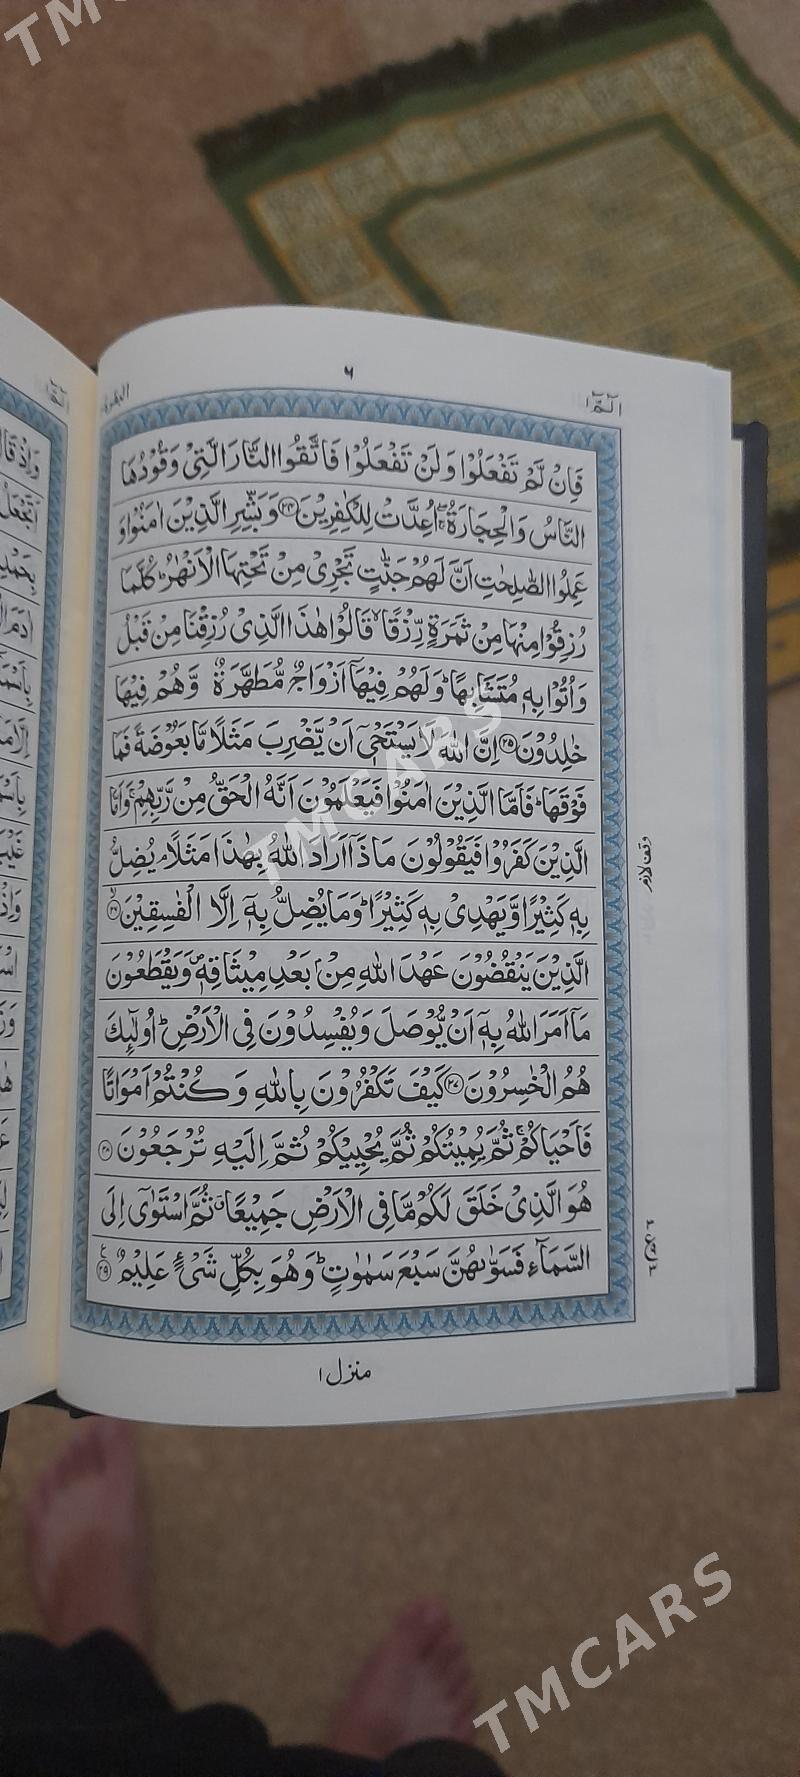 TMCARS
البقرة
٦
الٓمّٓ ١
فَاِنْ لَّمْ تَفْعَلُوْا وَلَنْ تَفْعَلُوْا فَاتَّقُوا النَّارَ الَّتِیْ وَقُوْدُهَا
النَّاسُ وَالْحِجَارَةُ ۚۖ اُعِدَّتْ لِلْكٰفِرِیْنَ ۟۲۴ وَبَشِّرِ الَّذِیْنَ اٰمَنُوْا وَ
عَمِلُوا الصّٰلِحٰتِ اَنَّ لَهُمْ جَنّٰتٍ تَجْرِیْ مِنْ تَحْتِهَا الْاَنْهٰرُ ؕ كُلَّمَا
رُزِقُوْا مِنْهَا مِنْ ثَمَرَةٍ رِّزْقًا ۙ قَالُوْا هٰذَا الَّذِیْ رُزِقْنَا مِنْ قَبْلُ
وَاُتُوْا بِهٖ مُتَشَابِهًا ؕ وَلَهُمْ فِیْهَاۤ اَزْوَاجٌ مُّطَهَّرَةٌ وَّهُمْ فِیْهَا
خٰلِدُوْنَ ۟۲۵ اِنَّ اللّٰهَ لَا یَسْتَحْیٖۤ اَنْ یَّضْرِبَ مَثَلًا مَّا بَعُوْضَةً فَمَا
فَوْقَهَا ؕ فَاَمَّا الَّذِیْنَ اٰمَنُوْا فَیَعْلَمُوْنَ اَنَّهُ الْحَقُّ مِنْ رَّبِّهِمْ ۚ وَاَمَّا
الَّذِیْنَ كَفَرُوْا فَیَقُوْلُوْنَ مَاذَاۤ اَرَادَ اللّٰهُ بِهٰذَا مَثَلًا ۘ یُضِلُّ
بِهٖ كَثِیْرًا وَّیَهْدِیْ بِهٖ كَثِیْرًا ؕ وَمَا یُضِلُّ بِهٖۤ اِلَّا الْفٰسِقِیْنَ ۟ۙ۲۶
الَّذِیْنَ یَنْقُضُوْنَ عَهْدَ اللّٰهِ مِنْ بَعْدِ مِیْثَاقِهٖ ۪ وَیَقْطَعُوْنَ
مَاۤ اَمَرَ اللّٰهُ بِهٖۤ اَنْ یُّوْصَلَ وَیُفْسِدُوْنَ فِی الْاَرْضِ ؕ اُولٰٓىِٕكَ
هُمُ الْخٰسِرُوْنَ ۟۲۷ كَیْفَ تَكْفُرُوْنَ بِاللّٰهِ وَكُنْتُمْ اَمْوَاتًا
فَاَحْیَاكُمْ ۚ ثُمَّ یُمِیْتُكُمْ ثُمَّ یُحْیِیْكُمْ ثُمَّ اِلَیْهِ تُرْجَعُوْنَ ۟۲۸
هُوَ الَّذِیْ خَلَقَ لَكُمْ مَّا فِی الْاَرْضِ جَمِیْعًا ۗ ثُمَّ اسْتَوٰۤی اِلَی
السَّمَآءِ فَسَوّٰىهُنَّ سَبْعَ سَمٰوٰتٍ ؕ وَهُوَ بِكُلِّ شَیْءٍ عَلِیْمٌ ۟۲۹
وقف لازم
منزل ١
TMCARS
TMCARS